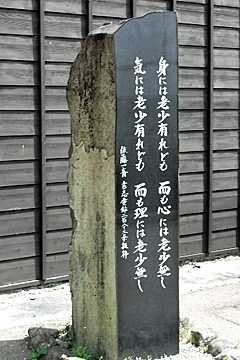 身には老少有れども 而も心には老少無し
気には老少有れども 而も理には老少無し
佐藤一斎 言志耋録二百八十三条抜粋